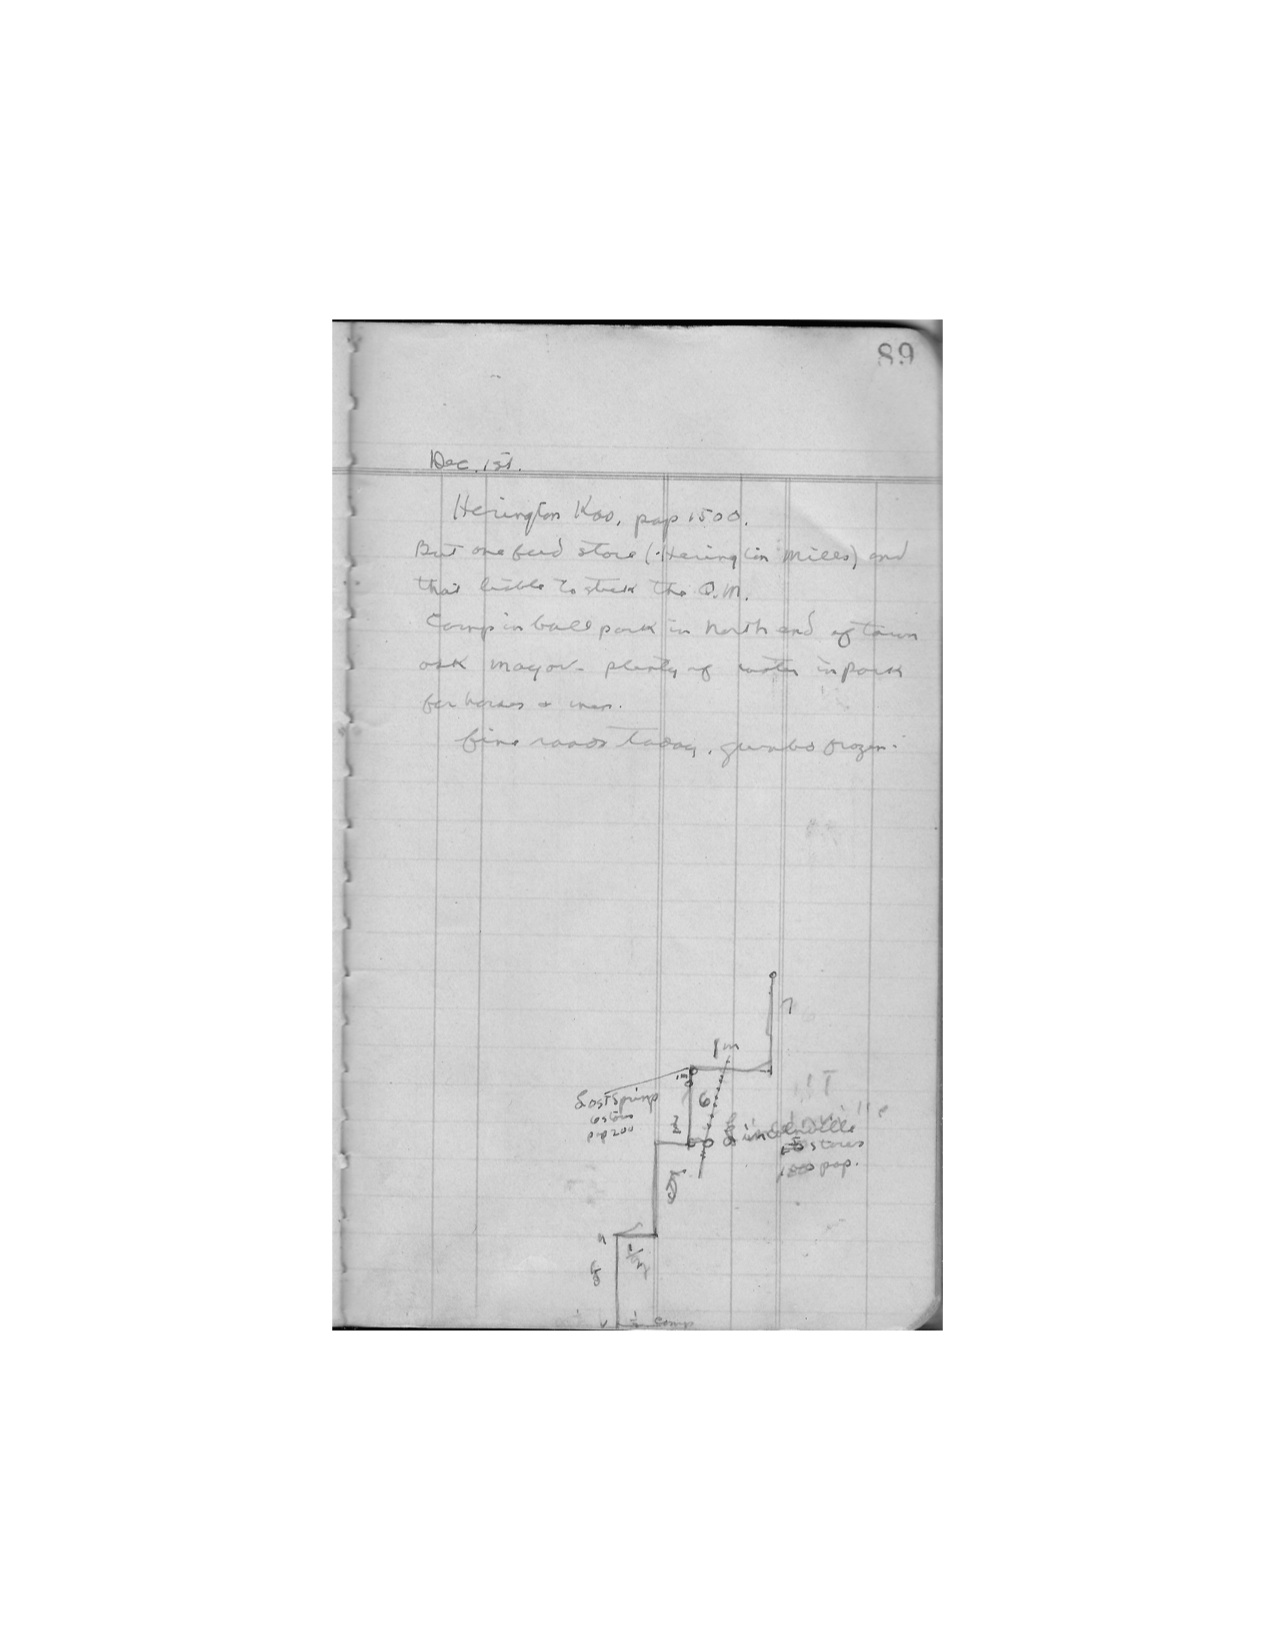 89
Dec. 1st.
Herington Kas, pop 1500.
But one feed store (Herington Mills) and
that liable to stick the Q.M.
Camp in ball park in North end of town
ask mayor - plenty of water in park
for horses & men.
fine roads today, gumbo frozen.
7
1 m
Lost Springs
6 stores
pop 200
6
Lincolnville
stores
pop.
1/2
camp